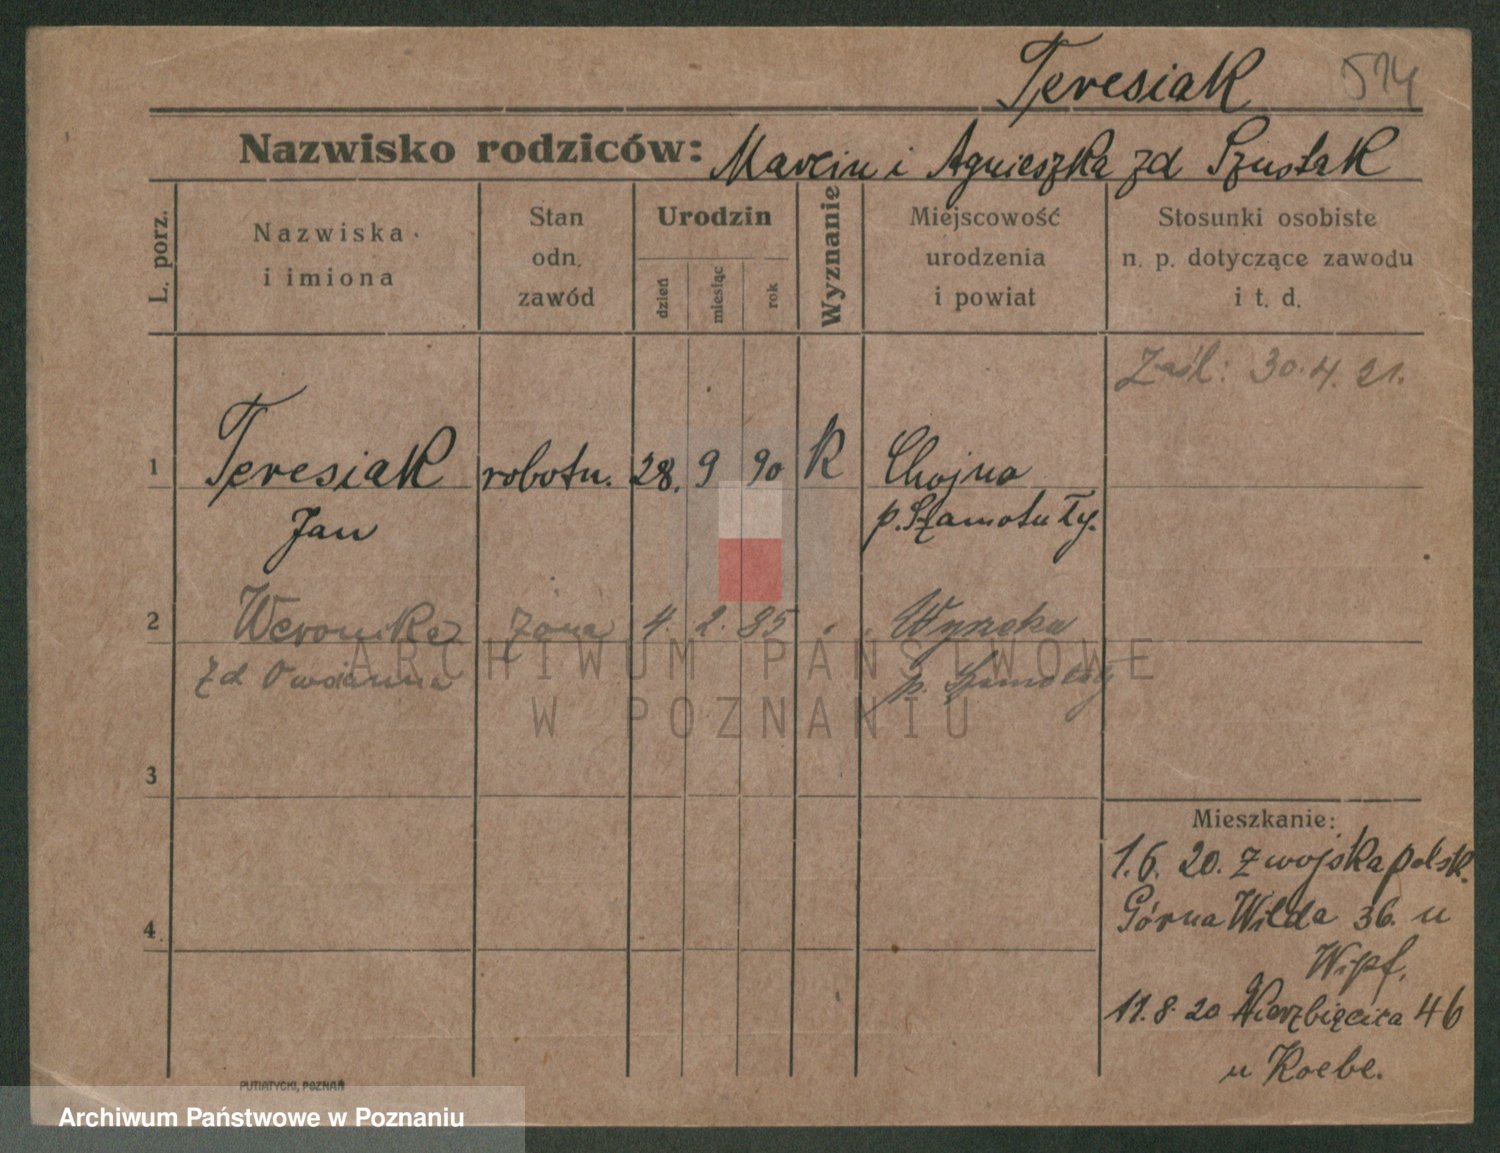 Teresiak 514
Nazwisko rodziców: Marcin i Agnieszka zd Szustak
L. porz.
Nazwiska i imiona
Stan odn. zawód
Urodzin
dzień
miesiąc
rok
Wyznanie
Miejscowość urodzenia i powiat
Stosunki osobiste n. p. dotyczące zawodu i t. d.
Zaśl: 30.4.21.
1 Teresiak robotn. 28. 9 90 K Chojna
Jan p. Szamotuły.
2 Weronika żona 4. 2. 85 Wyneka
zd Owsianna p.
3
Mieszkanie:
1.6.20. z wojska polsk.
Górna Wilda 36. u
4
Wipf.
11.8.20 Wierzbięcica 46
u Koebe.
PUTIATYCKI, POZNAŃ
ARCHIWUM PAŃSTWOWE
W POZNANIU
Archiwum Państwowe w Poznaniu